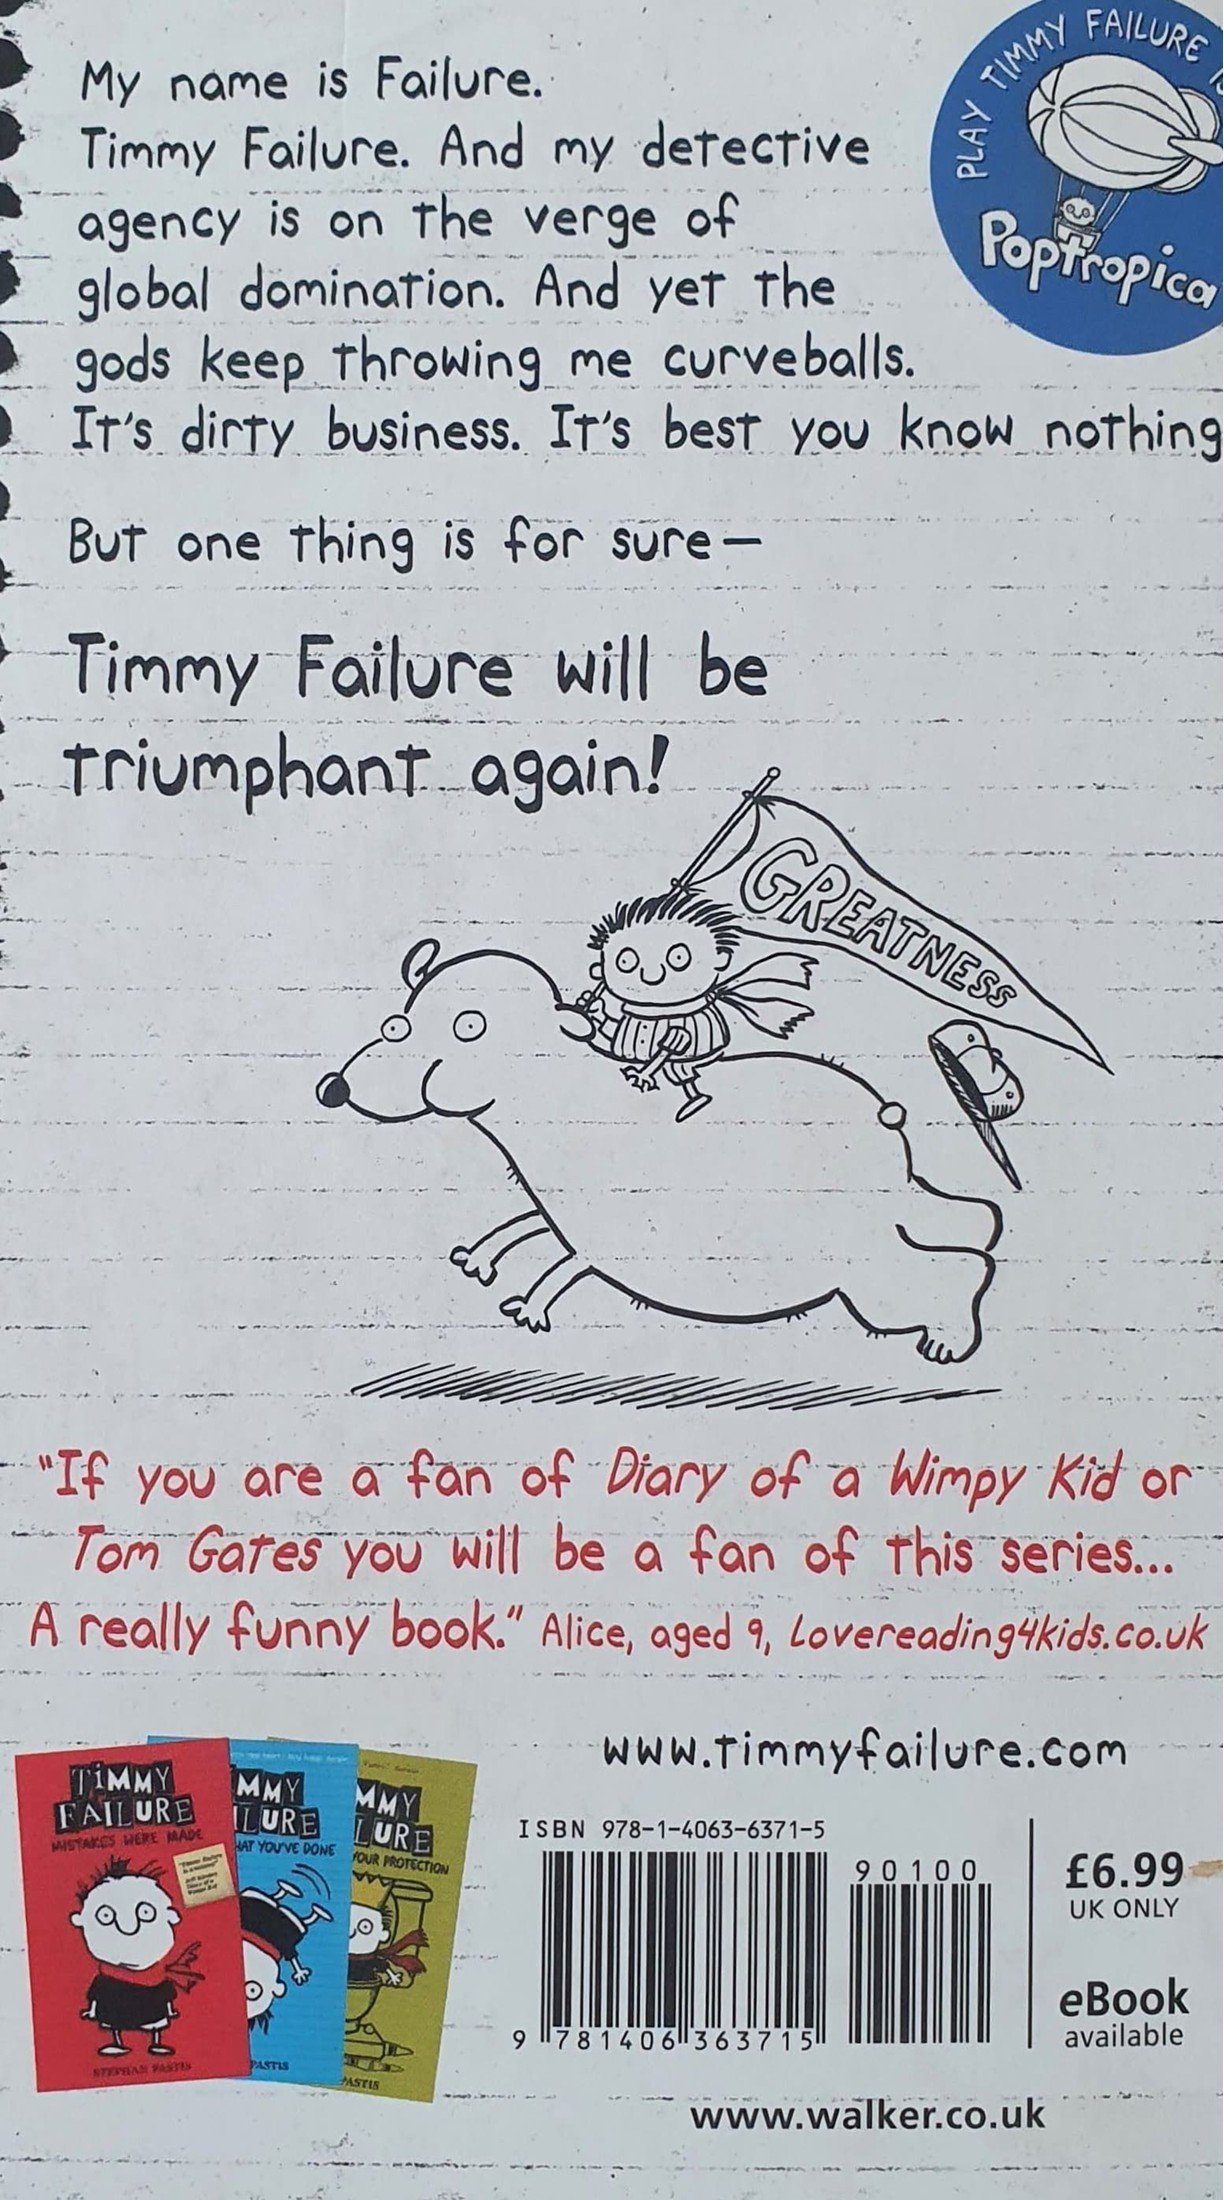 My name is Failure.
Timmy Failure. And my detective
agency is on the verge of
global domination. And yet the
gods keep throwing me curveballs.
It's dirty business. It's best you know nothing
PLAY TIMMY FAILURE
Poptropica
But one thing is for sure—
Timmy Failure will be
triumphant again!
GREATNESS
"If you are a fan of Diary of a Wimpy Kid or
Tom Gates you will be a fan of this series...
A really funny book." Alice, aged 9, Lovereading4kids.co.uk
www.timmyfailure.com
TIMMY
FAILURE
MISTAKES WERE MADE
STEPHAN PASTIS
MMY
LURE
AT YOU'VE DONE
PASTIS
MMY
LURE
YOUR PROTECTION
PASTIS
ISBN 978-1-4063-6371-5
90100
9 781406 363715
£6.99
UK ONLY
eBook
available
www.walker.co.uk